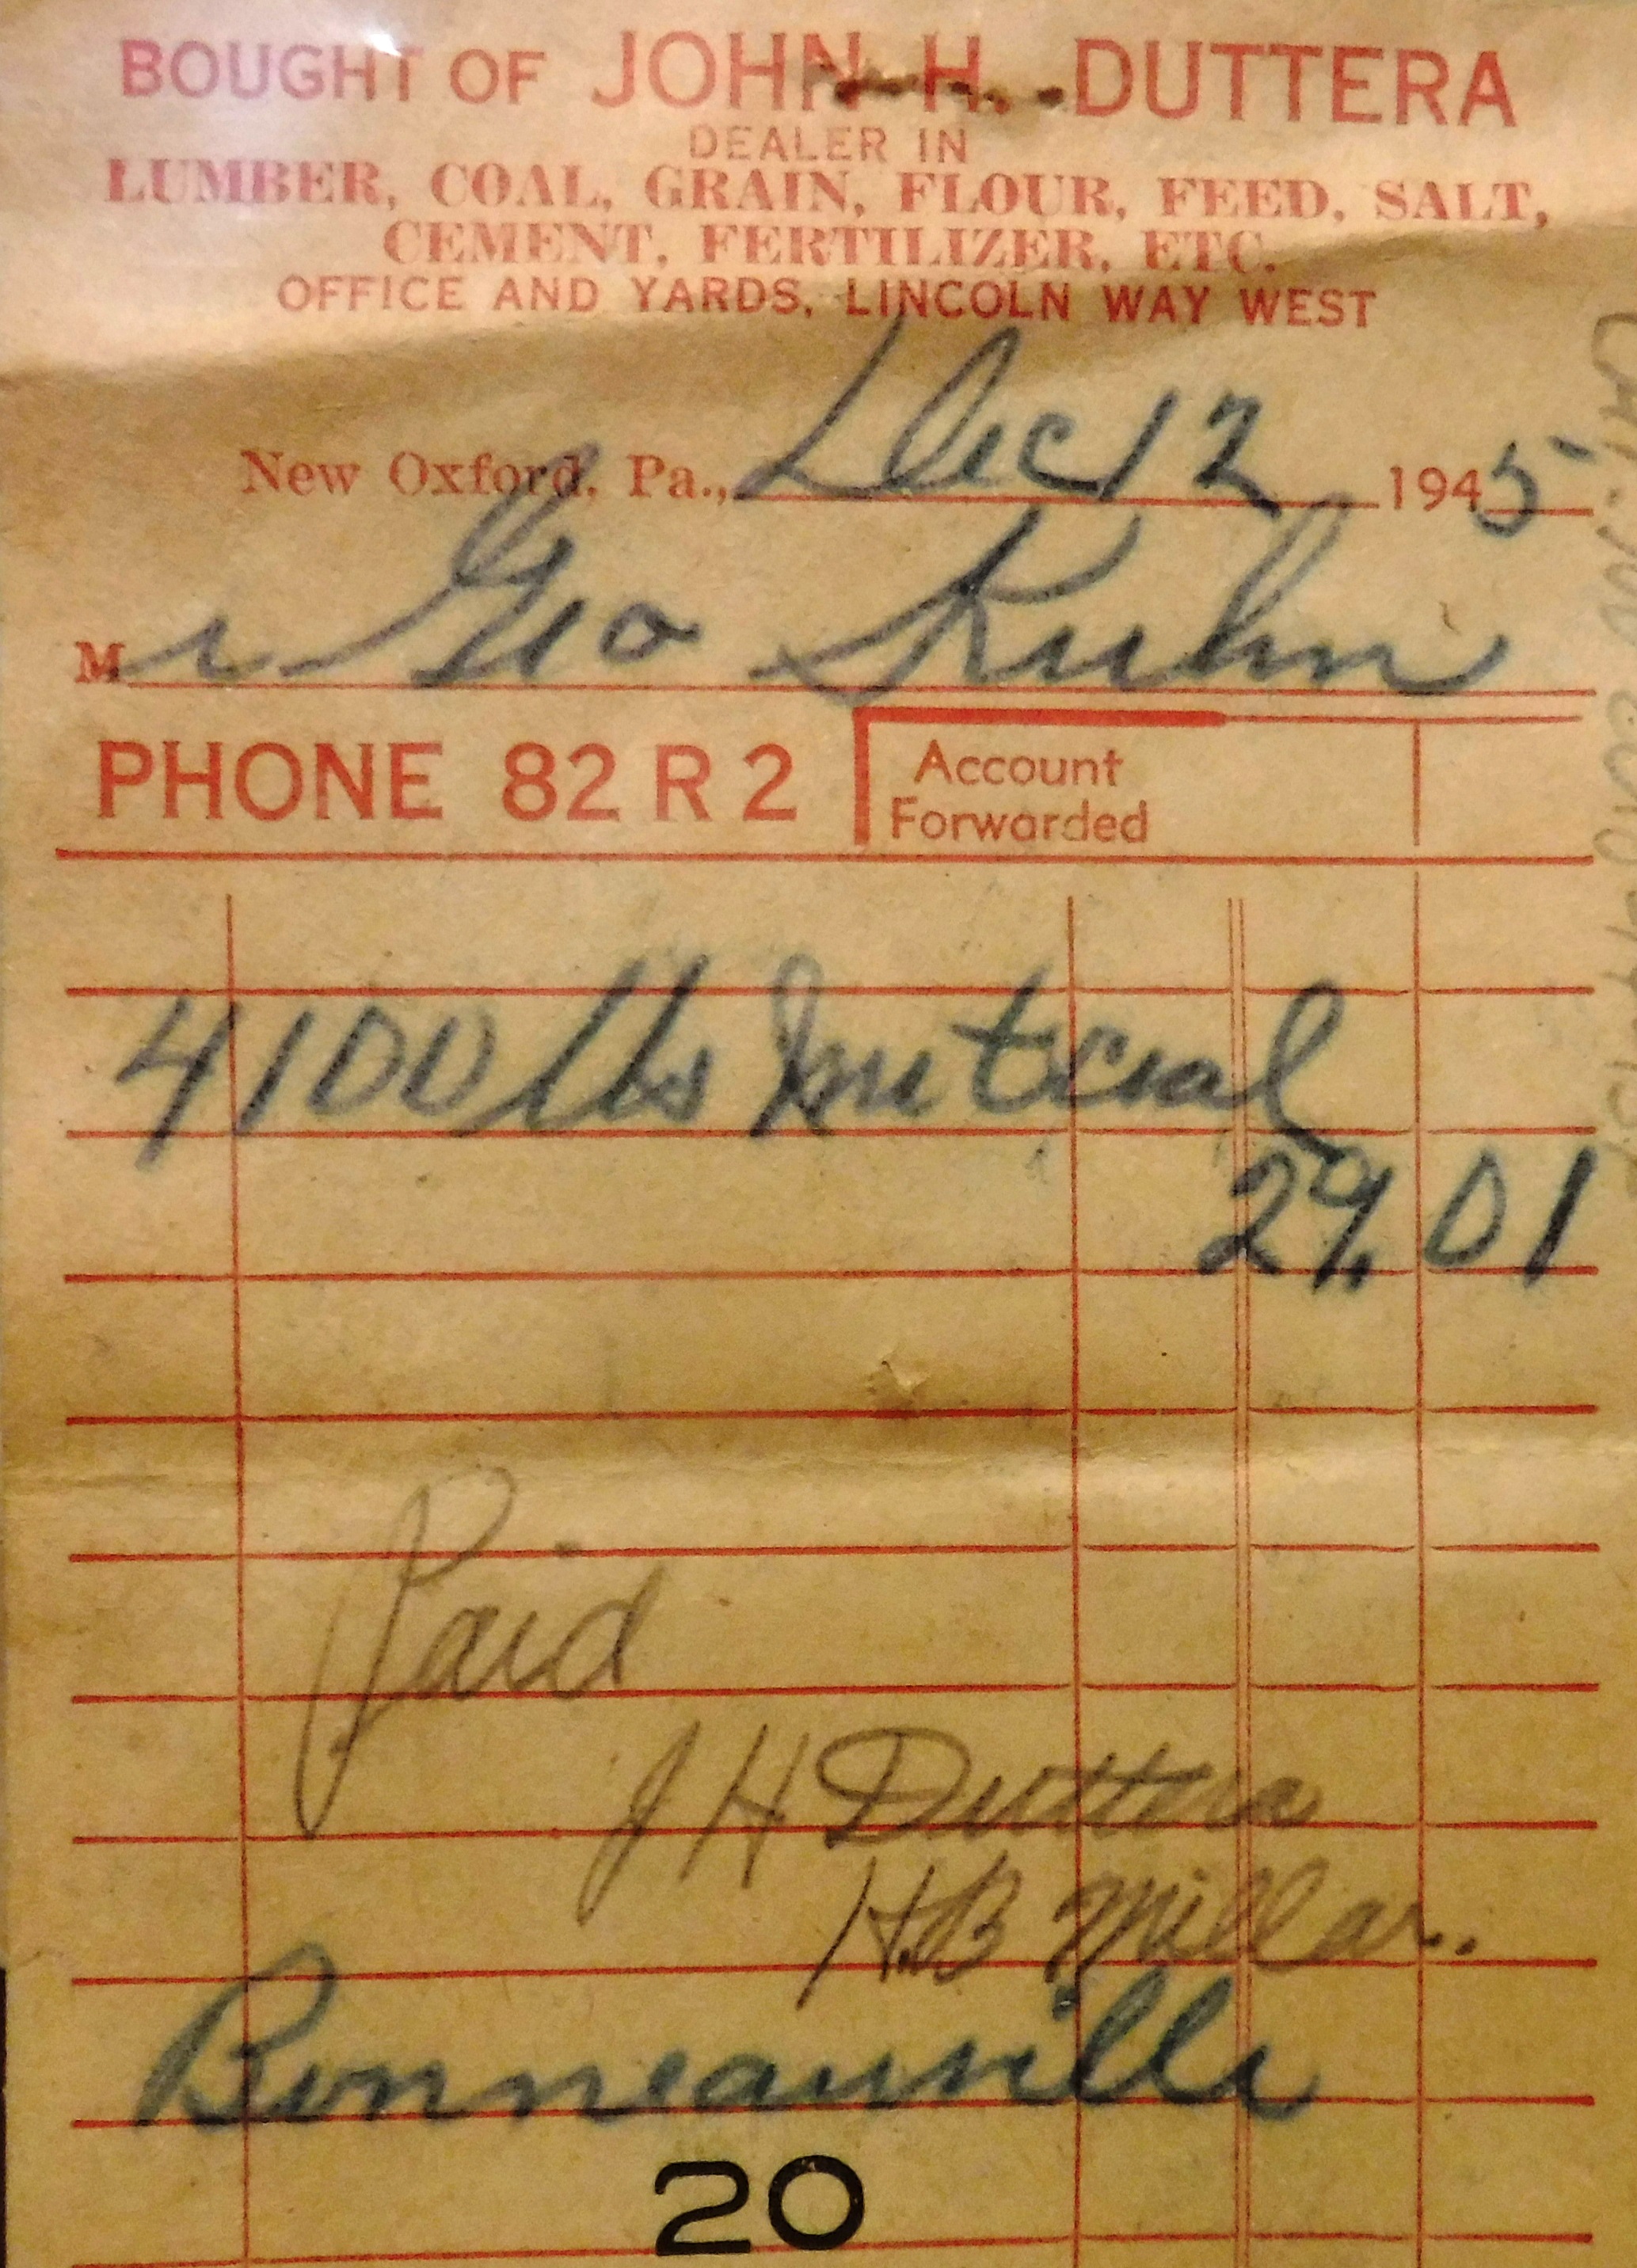 BOUGHT OF JOHN H. DUTTERA
DEALER IN
LUMBER, COAL, GRAIN, FLOUR, FEED, SALT,
CEMENT, FERTILIZER, ETC.
OFFICE AND YARDS, LINCOLN WAY WEST
New Oxford, Pa., Dec 12 1945
Mr Geo Kuhn
PHONE 82 R 2
Account
Forwarded
4100 lbs nut coal
29.01
Paid
J H Duttera
H.B Millar..
Bonneauville
20